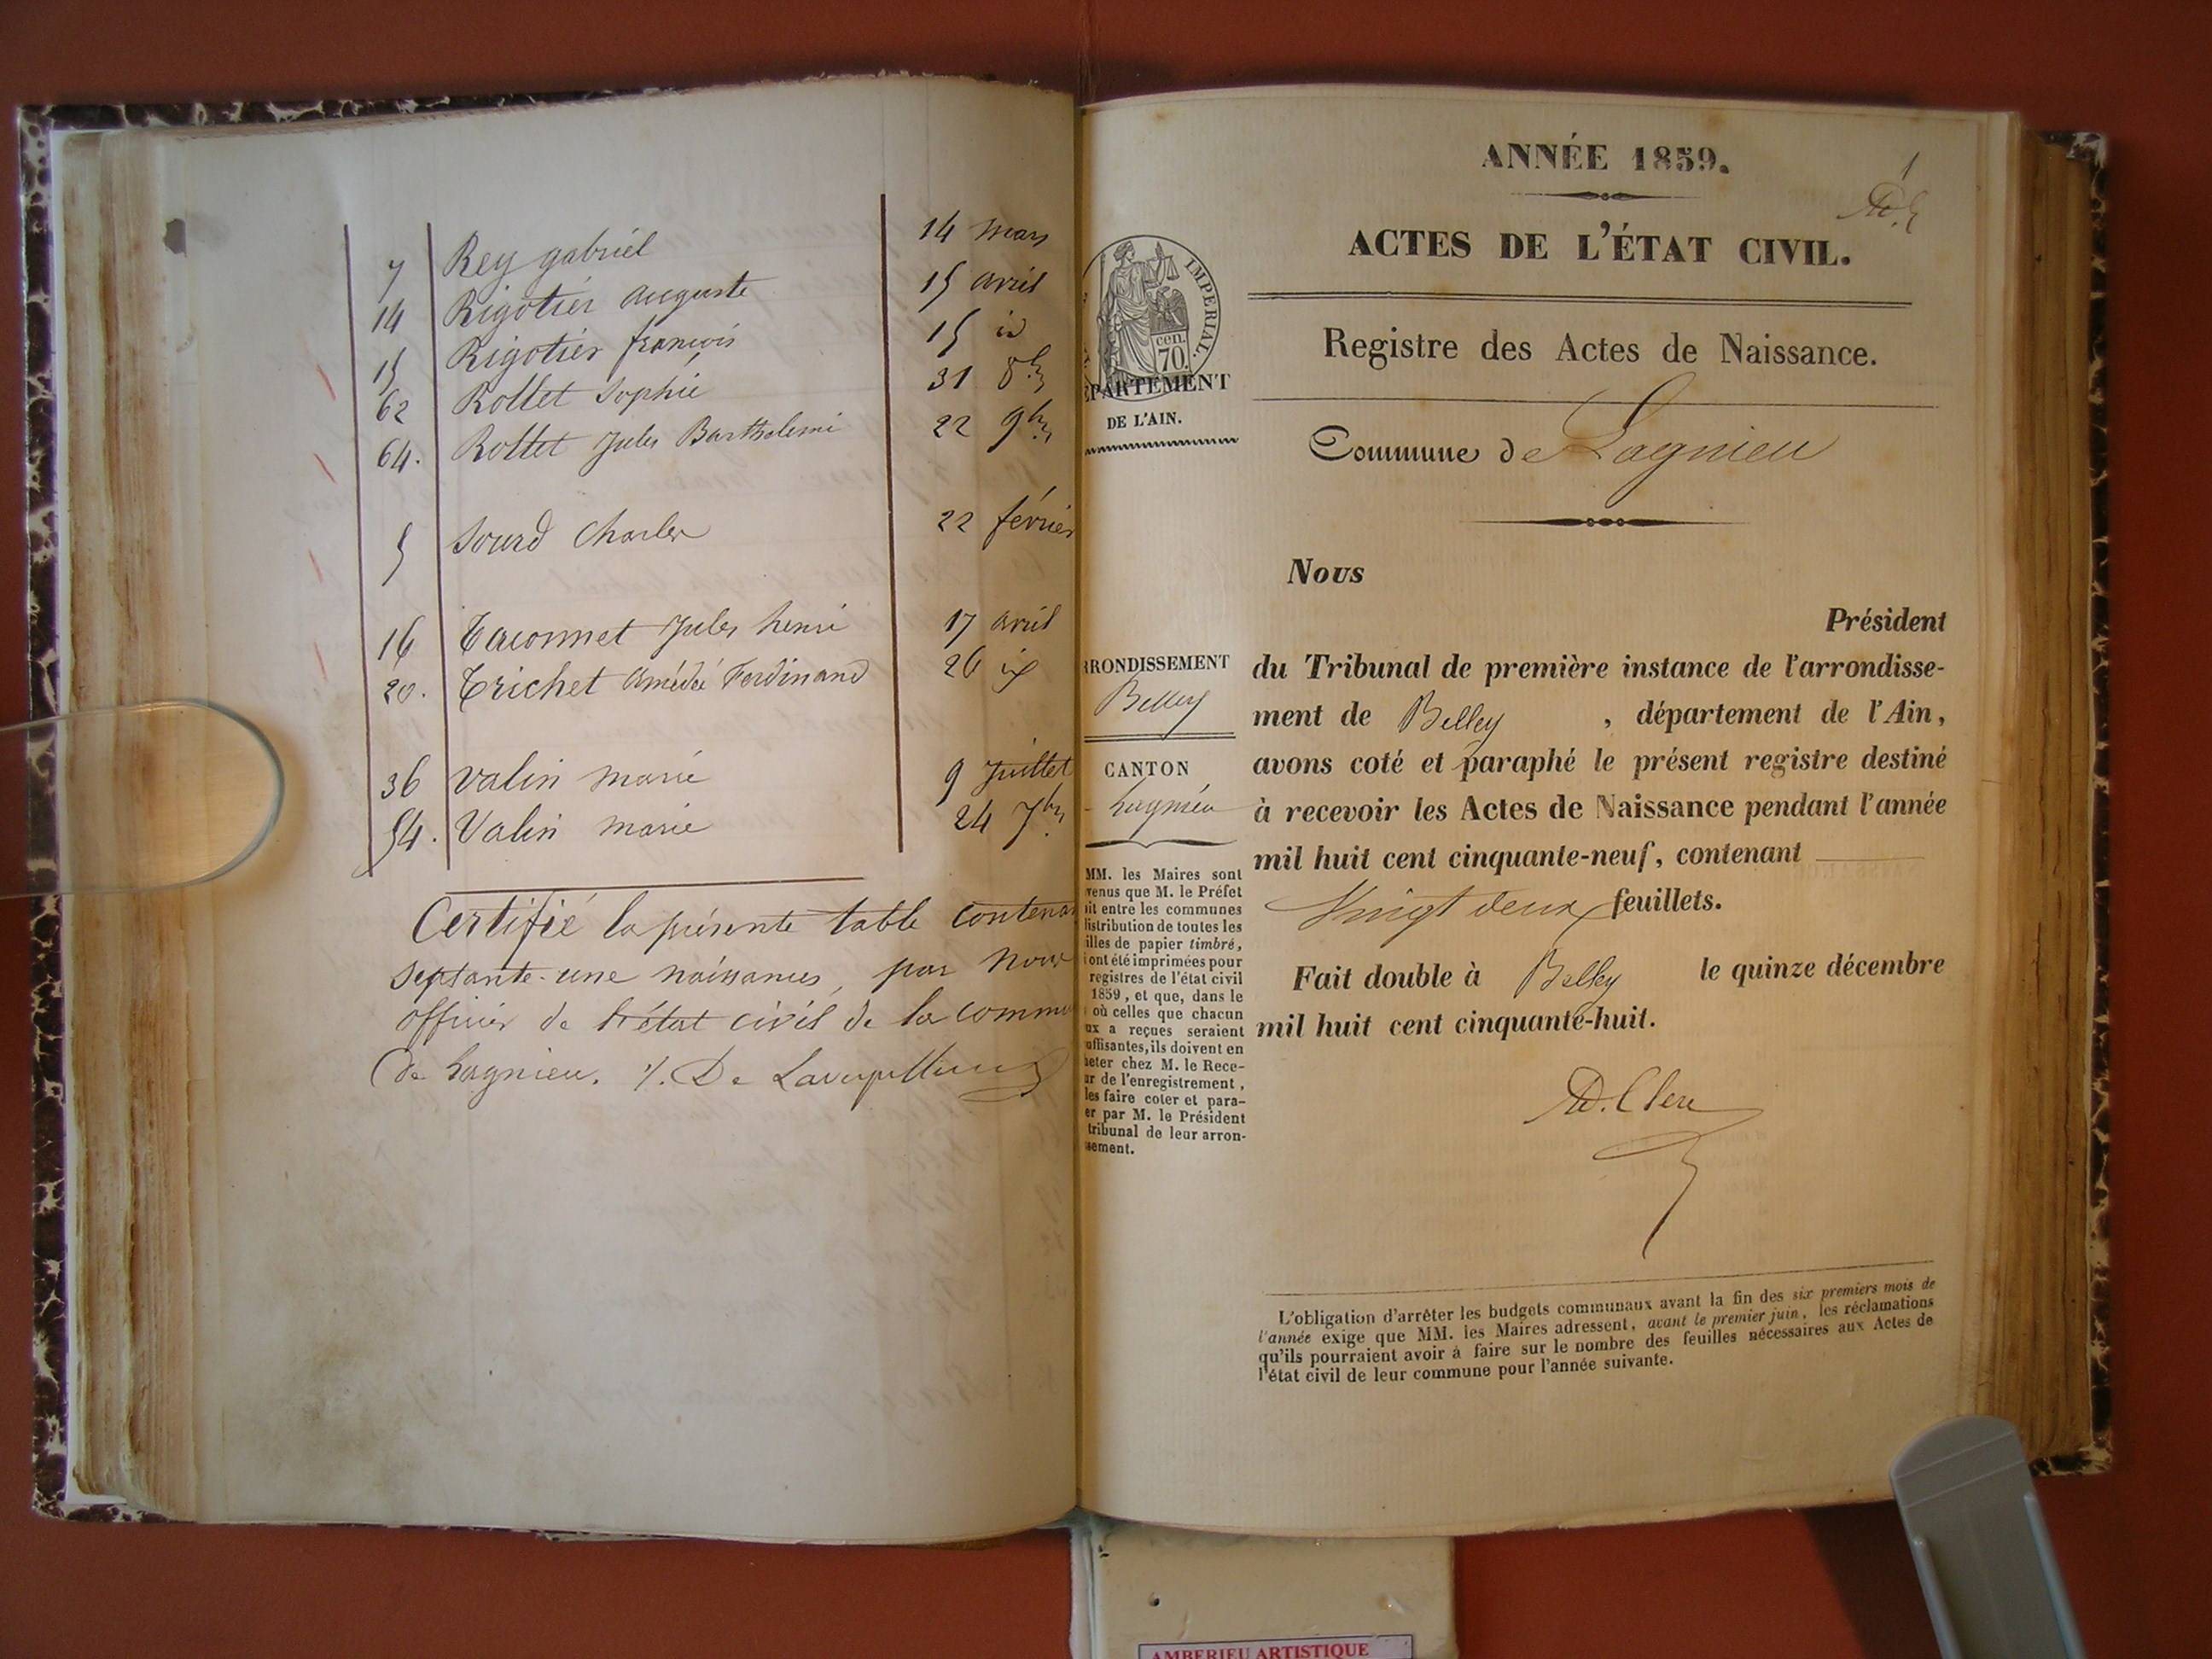 7 Rey gabriel 14 mars
14 Rigotier auguste 15 avril
15 Rigotier françois 15 id
62 Rollet Sophie 31 8bre
64. Rollet Jules Barthelemi 22 9bre
5 Sourd Charles 22 février
16 Taconnet Jules henri 17 avril
20. Trichet Amédée Ferdinand 26 id
36 Valin marie 9 Juillet
54. Valin marie 24 7bre
Certifié la présente table contena
septante-une naissances, par nous
officier de l'état civil de la commu
de Lagnieu. De
ANNÉE 1859.
1
ACTES DE L'ÉTAT CIVIL.
IMPERIAL.
cen.
70.
Registre des Actes de Naissance.
ÉPARTEMENT
DE L'AIN.
Commune de Lagnieu
Nous
Président
RRONDISSEMENT
Belley
du Tribunal de première instance de l'arrondisse-
ment de Belley, département de l'Ain,
avons coté et paraphé le présent registre destiné
à recevoir les Actes de Naissance pendant l'année
mil huit cent cinquante-neuf, contenant
Vingt deux feuillets.
Fait double à Belley le quinze décembre
mil huit cent cinquante-huit.
Ad. Clerc
CANTON
Lagnieu
MM. les Maires sont
venus que M. le Préfet
it entre les communes
distribution de toutes les
illes de papier timbré,
i ont été imprimées pour
registres de l'état civil
1859, et que, dans le
où celles que chacun
ux a reçues seraient
uffisantes, ils doivent en
heter chez M. le Rece-
ur de l'enregistrement,
les faire coter et para-
er par M. le Président
tribunal de leur arron-
sement.
L'obligation d'arrêter les budgets communaux avant la fin des six premiers mois de
l'année exige que MM. les Maires adressent, avant le premier juin, les réclamations
qu'ils pourraient avoir à faire sur le nombre des feuilles nécessaires aux Actes de
l'état civil de leur commune pour l'année suivante.
AMBERIEU ARTISTIQUE